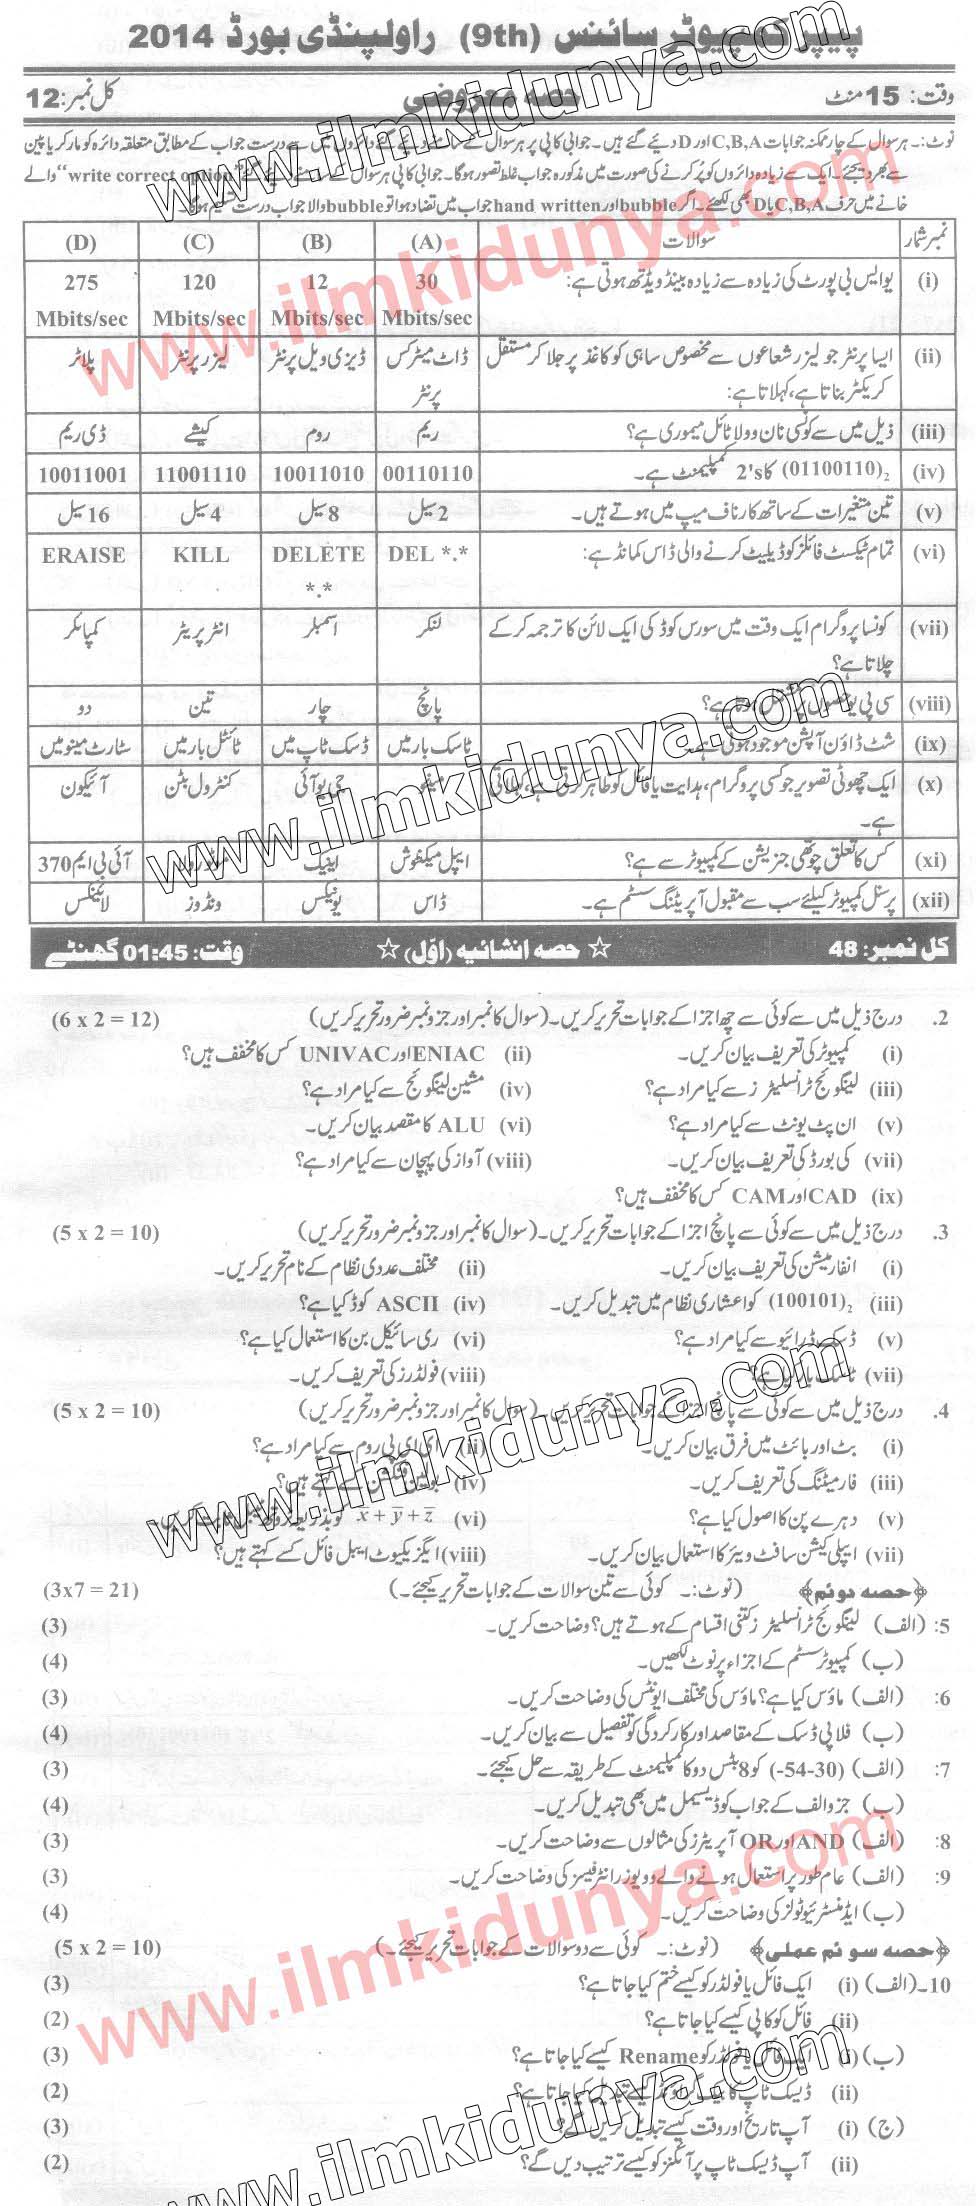 پیپر کمپیوٹر سائنس (9th) راولپنڈی بورڈ 2014
وقت: 15 منٹ حصہ معروضی کل نمبر: 12
نوٹ:۔ ہر سوال کے چار ممکنہ جوابات C,B,A اور D دیئے گئے ہیں۔ جوابی کاپی پر ہر سوال کے سامنے دیئے گئے دائروں میں سے درست جواب کے مطابق متعلقہ دائرہ کو مارکر یا پین
سے بھر دیجئے۔ ایک سے زیادہ دائروں کو پُر کرنے کی صورت میں مذکورہ جواب غلط تصور ہوگا۔ جوابی کاپی ہر سوال کے سامنے دیئے گئے "write correct option" والے
خانے میں حرف C,B,A یا D بھی لکھئے۔ اگر bubble اور hand written جواب میں تضاد ہوا تو bubble والا جواب درست تسلیم ہوگا۔
نمبر شمار سوالات (A) (B) (C) (D)
(i) یو ایس بی پورٹ کی زیادہ سے زیادہ بینڈ ویڈتھ ہوتی ہے: 30 Mbits/sec 12 Mbits/sec 120 Mbits/sec 275 Mbits/sec
(ii) ایسا پرنٹر جو لیزر شعاعوں سے مخصوص سیاہی کو کاغذ پر جلا کر مستقل کریکٹر بناتا ہے، کہلاتا ہے: ڈاٹ میٹرکس پرنٹر ڈیزی ویل پرنٹر لیزر پرنٹر پلاٹر
(iii) ذیل میں سے کونسی نان وولاٹائل میموری ہے؟ ریم روم کیشے ڈی ریم
(iv) (01100110)₂ کا 2's کمپلیمنٹ ہے۔ 00110110 10011010 11001110 10011001
(v) تین متغیرات کے ساتھ کارناف میپ میں ہوتے ہیں۔ 2 سیل 8 سیل 4 سیل 16 سیل
(vi) تمام ٹیکسٹ فائلز کو ڈیلیٹ کرنے والی ڈاس کمانڈ ہے: DEL *.* DELETE *.* KILL ERAISE
(vii) کونسا پروگرام ایک وقت میں سورس کوڈ کی ایک لائن کا ترجمہ کر کے چلاتا ہے؟ لنکر اسمبلر انٹرپریٹر کمپائلر
(viii) سی پی یو حصوں پر مشتمل ہوتا ہے؟ پانچ چار تین دو
(ix) شٹ ڈاؤن آپشن موجود ہوتی ہے۔ ٹاسک بار میں ڈسک ٹاپ میں ٹائٹل بار میں سٹارٹ مینو میں
(x) ایک چھوٹی تصویر جو کسی پروگرام، ہدایت یا فائل کو ظاہر کرتی ہے، کہلاتی ہے۔ مینو جی یو آئی کنٹرول بٹن آئیکون
(xi) کس کا تعلق چوتھی جنریشن کے کمپیوٹر سے ہے؟ ایپل میکنٹوش اینیک موٹورولا آئی بی ایم 370
(xii) پرسنل کمپیوٹر کیلئے سب سے مقبول آپریٹنگ سسٹم ہے۔ ڈاس یونیکس ونڈوز لائینکس
کل نمبر: 48 ☆ حصہ انشائیہ (اوّل) ☆ وقت: 01:45 گھنٹے
2. درج ذیل میں سے کوئی سے چھ اجزا کے جوابات تحریر کریں۔ (سوال کا نمبر اور جزو نمبر ضرور تحریر کریں) (6 x 2 = 12)
(i) کمپیوٹر کی تعریف بیان کریں۔ (ii) ENIAC اور UNIVAC کس کا مخفف ہیں؟
(iii) لینگوئج ٹرانسلیٹرز سے کیا مراد ہے؟ (iv) مشین لینگوئج سے کیا مراد ہے؟
(v) ان پٹ یونٹ سے کیا مراد ہے؟ (vi) ALU کا مقصد بیان کریں۔
(vii) کی بورڈ کی تعریف بیان کریں۔ (viii) آواز کی پہچان سے کیا مراد ہے؟
(ix) CAD اور CAM کس کا مخفف ہیں؟
3. درج ذیل میں سے کوئی سے پانچ اجزا کے جوابات تحریر کریں۔ (سوال کا نمبر اور جزو نمبر ضرور تحریر کریں) (5 x 2 = 10)
(i) انفارمیشن کی تعریف بیان کریں۔ (ii) مختلف عددی نظام کے نام تحریر کریں۔
(iii) (100101)₂ کو اعشاری نظام میں تبدیل کریں۔ (iv) ASCII کوڈ کیا ہے؟
(v) ڈسک ڈرائیو سے کیا مراد ہے؟ (vi) ری سائیکل بن کا استعمال کیا ہے؟
(vii) ٹاسک بار کیا ہے؟ (viii) فولڈرز کی تعریف کریں۔
4. درج ذیل میں سے کوئی سے پانچ اجزا کے جوابات تحریر کریں۔ (سوال کا نمبر اور جزو نمبر ضرور تحریر کریں) (5 x 2 = 10)
(i) بٹ اور بائٹ میں فرق بیان کریں۔ (ii) ای ای پی روم سے کیا مراد ہے؟
(iii) فارمیٹنگ کی تعریف کریں۔ (iv) بولین فنکشن کسے کہتے ہیں؟
(v) دہرے پن کا اصول کیا ہے؟ (vi) x̄ + ȳ + z̄ کو بذریعہ ٹروتھ ٹیبل ثابت کریں۔
(vii) ایپلی کیشن سافٹ ویئر کا استعمال بیان کریں۔ (viii) ایگزیکیوٹ ایبل فائل کسے کہتے ہیں؟
﴿حصہ دوئم﴾ (نوٹ:۔ کوئی سے تین سوالات کے جوابات تحریر کیجئے۔) (3x7 = 21)
5: (الف) لینگوئج ٹرانسلیٹرز کتنی اقسام کے ہوتے ہیں؟ وضاحت کریں۔ (3)
(ب) کمپیوٹر سسٹم کے اجزاء پر نوٹ لکھیں۔ (4)
6: (الف) ماؤس کیا ہے؟ ماؤس کی مختلف ایونٹس کی وضاحت کریں۔ (3)
(ب) فلاپی ڈسک کے مقاصد اور کارکردگی کو تفصیل سے بیان کریں۔ (4)
7: (الف) (-54-30) کو 8 بٹس دو کا کمپلیمنٹ کے طریقہ سے حل کیجئے۔ (3)
(ب) جزو الف کے جواب کو ڈیسیمل میں بھی تبدیل کریں۔ (4)
8: (الف) AND اور OR آپریٹرز کی مثالوں سے وضاحت کریں۔ (3)
9: (الف) عام طور پر استعمال ہونے والے دو یوزر انٹرفیسز کی وضاحت کریں۔ (3)
(ب) ایڈمنسٹریٹو ٹولز کی وضاحت کریں۔ (4)
﴿حصہ سوئم عملی﴾ (نوٹ:۔ کوئی سے دو سوالات کے جوابات تحریر کیجئے۔) (5 x 2 = 10)
10۔ (الف) (i) ایک فائل یا فولڈر کو کیسے ختم کیا جاتا ہے؟ (3)
(ii) فائل کو کاپی کیسے کیا جاتا ہے؟ (2)
(ب) (i) ایک فائل یا فولڈر کو Rename کیسے کیا جاتا ہے؟ (3)
(ii) ڈیسک ٹاپ کا بیک گراؤنڈ کیسے تبدیل کیا جاتا ہے؟ (2)
(ج) (i) آپ تاریخ اور وقت کیسے تبدیل کریں گے؟ (3)
(ii) آپ ڈیسک ٹاپ پر آئکنز کو کیسے ترتیب دیں گے؟ (2)
www.ilmkidunya.com
www.ilmkidunya.com
www.ilmkidunya.com
www.ilmkidunya.com
www.ilmkidunya.com
www.ilmkidunya.com